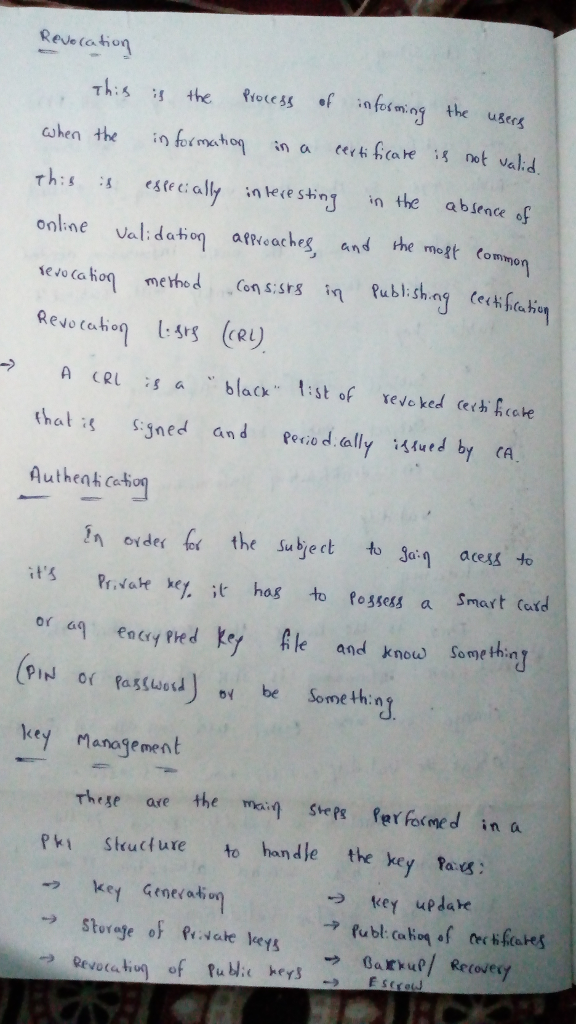 Revocation
This is the Process of informing the users
when the information in a certificate is not valid.
This is especially interesting in the absence of
online validation approaches, and the most common
revocation method consists in Publishing certification
Revocation Lists (CRL).
→ A CRL is a "black" list of revoked certificate
that is signed and periodically issued by CA.
Authentication
In order for the subject to gain acess to
it's Private key, it has to Possess a smart card
or an encrypted key file and know something
(PIN or Password) or be something.
key Management
These are the main steps Performed in a
PKI structure to handle the key Pairs:
→ key Generation → key update
→ Storage of Private keys → Publication of certificates
→ Revocation of Public keys → Backup/ Recovery
→ Escrow